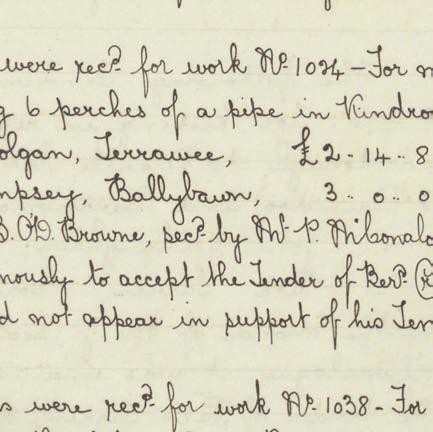 were recd. for work No. 1024 - For
6 perches of a pipe in
olgan, Terrawee, £2 .. 14 .. 8
mpsey, Ballybawn, 3 .. 0 .. 0
B. O'D. Browne, secd. by Mr. P.
mously to accept the Tender of Berd.
d not appear in support of his Ten
s were recd. for work No. 1038 - For